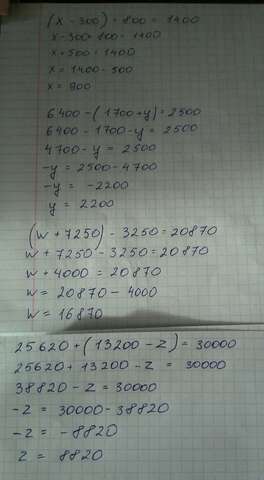 (x - 300) + 800 = 1400
x - 300 + 800 = 1400
x + 500 = 1400
x = 1400 - 500
x = 900
6400 - (1700 + y) = 2500
6400 - 1700 - y = 2500
4700 - y = 2500
-y = 2500 - 4700
-y = -2200
y = 2200
(w + 7250) - 3250 = 20870
w + 7250 - 3250 = 20870
w + 4000 = 20870
w = 20870 - 4000
w = 16870
25620 + (13200 - z) = 30000
25620 + 13200 - z = 30000
38820 - z = 30000
-z = 30000 - 38820
-z = -8820
z = 8820